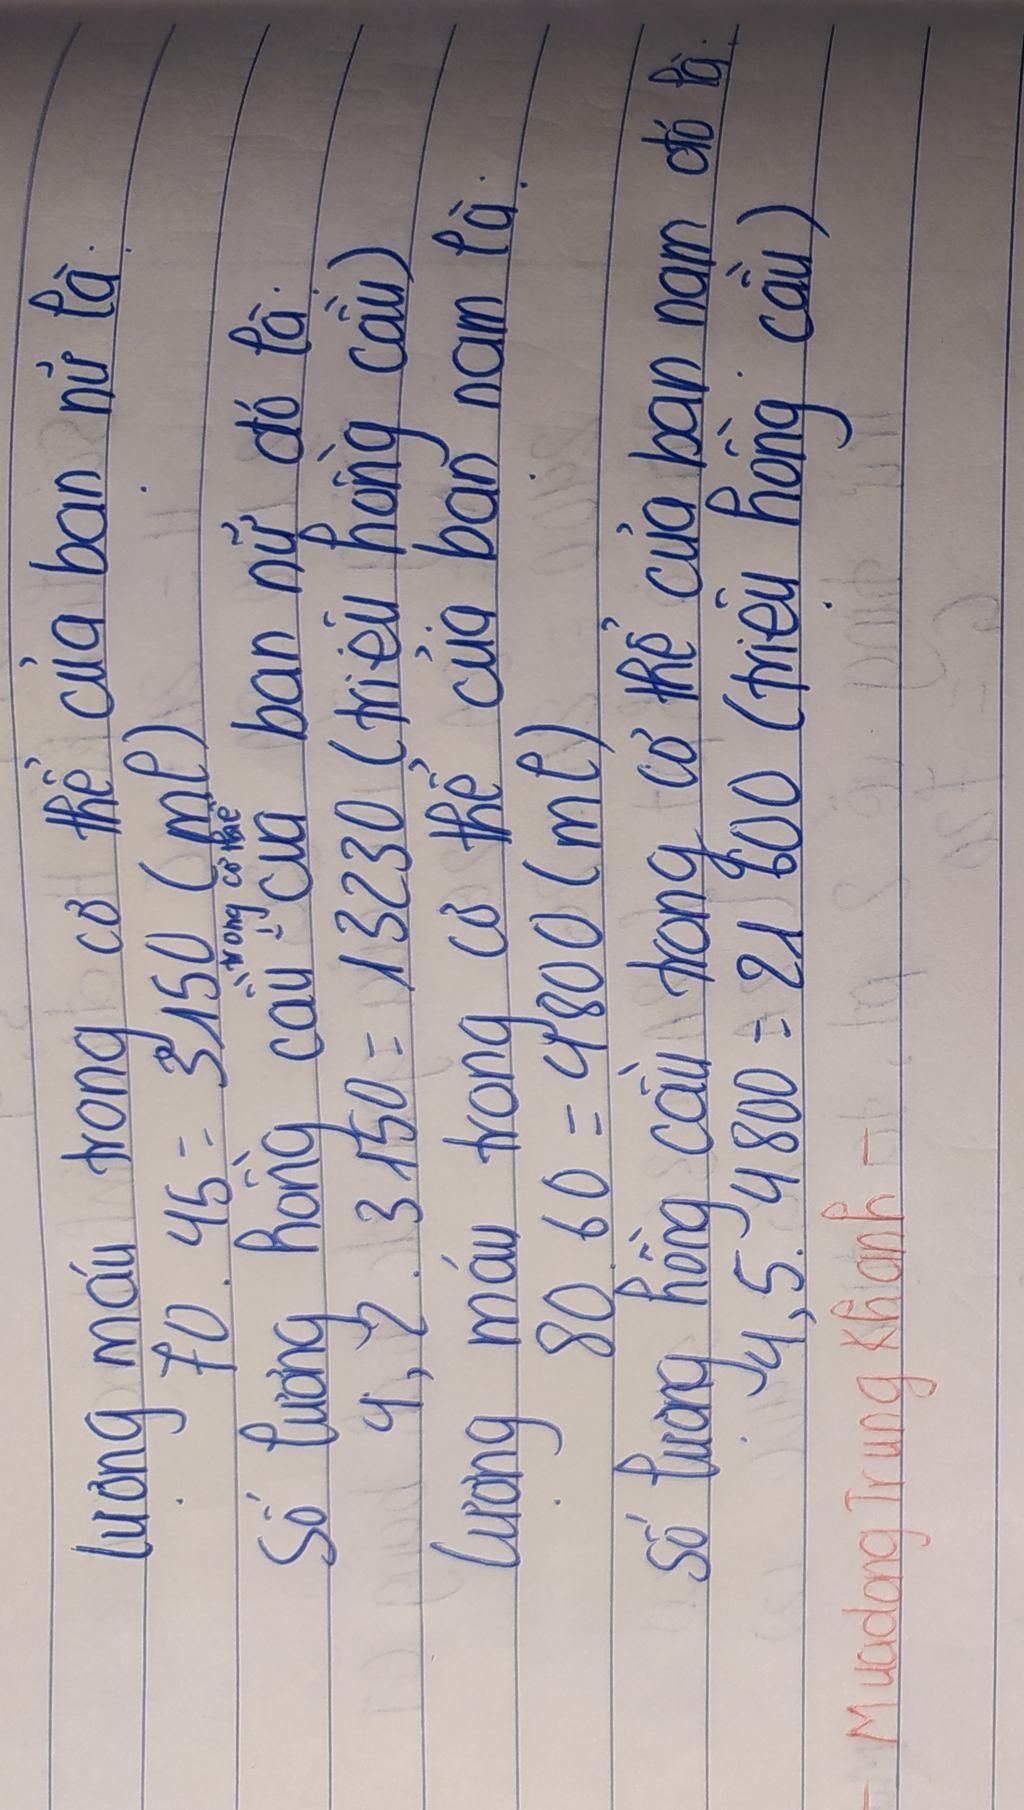 Lượng máu trong cơ thể của bạn nữ là:
70 . 45 = 3150 (ml)
Số lượng hồng cầu trong cơ thể của bạn nữ đó là:
4,2 . 3150 = 13230 (triệu hồng cầu)
Lượng máu trong cơ thể của bạn nam là:
80 . 60 = 4800 (ml)
Số lượng hồng cầu trong cơ thể của bạn nam đó là:
4,5 . 4800 = 21600 (triệu hồng cầu)
- Muadong Trung Khanh -